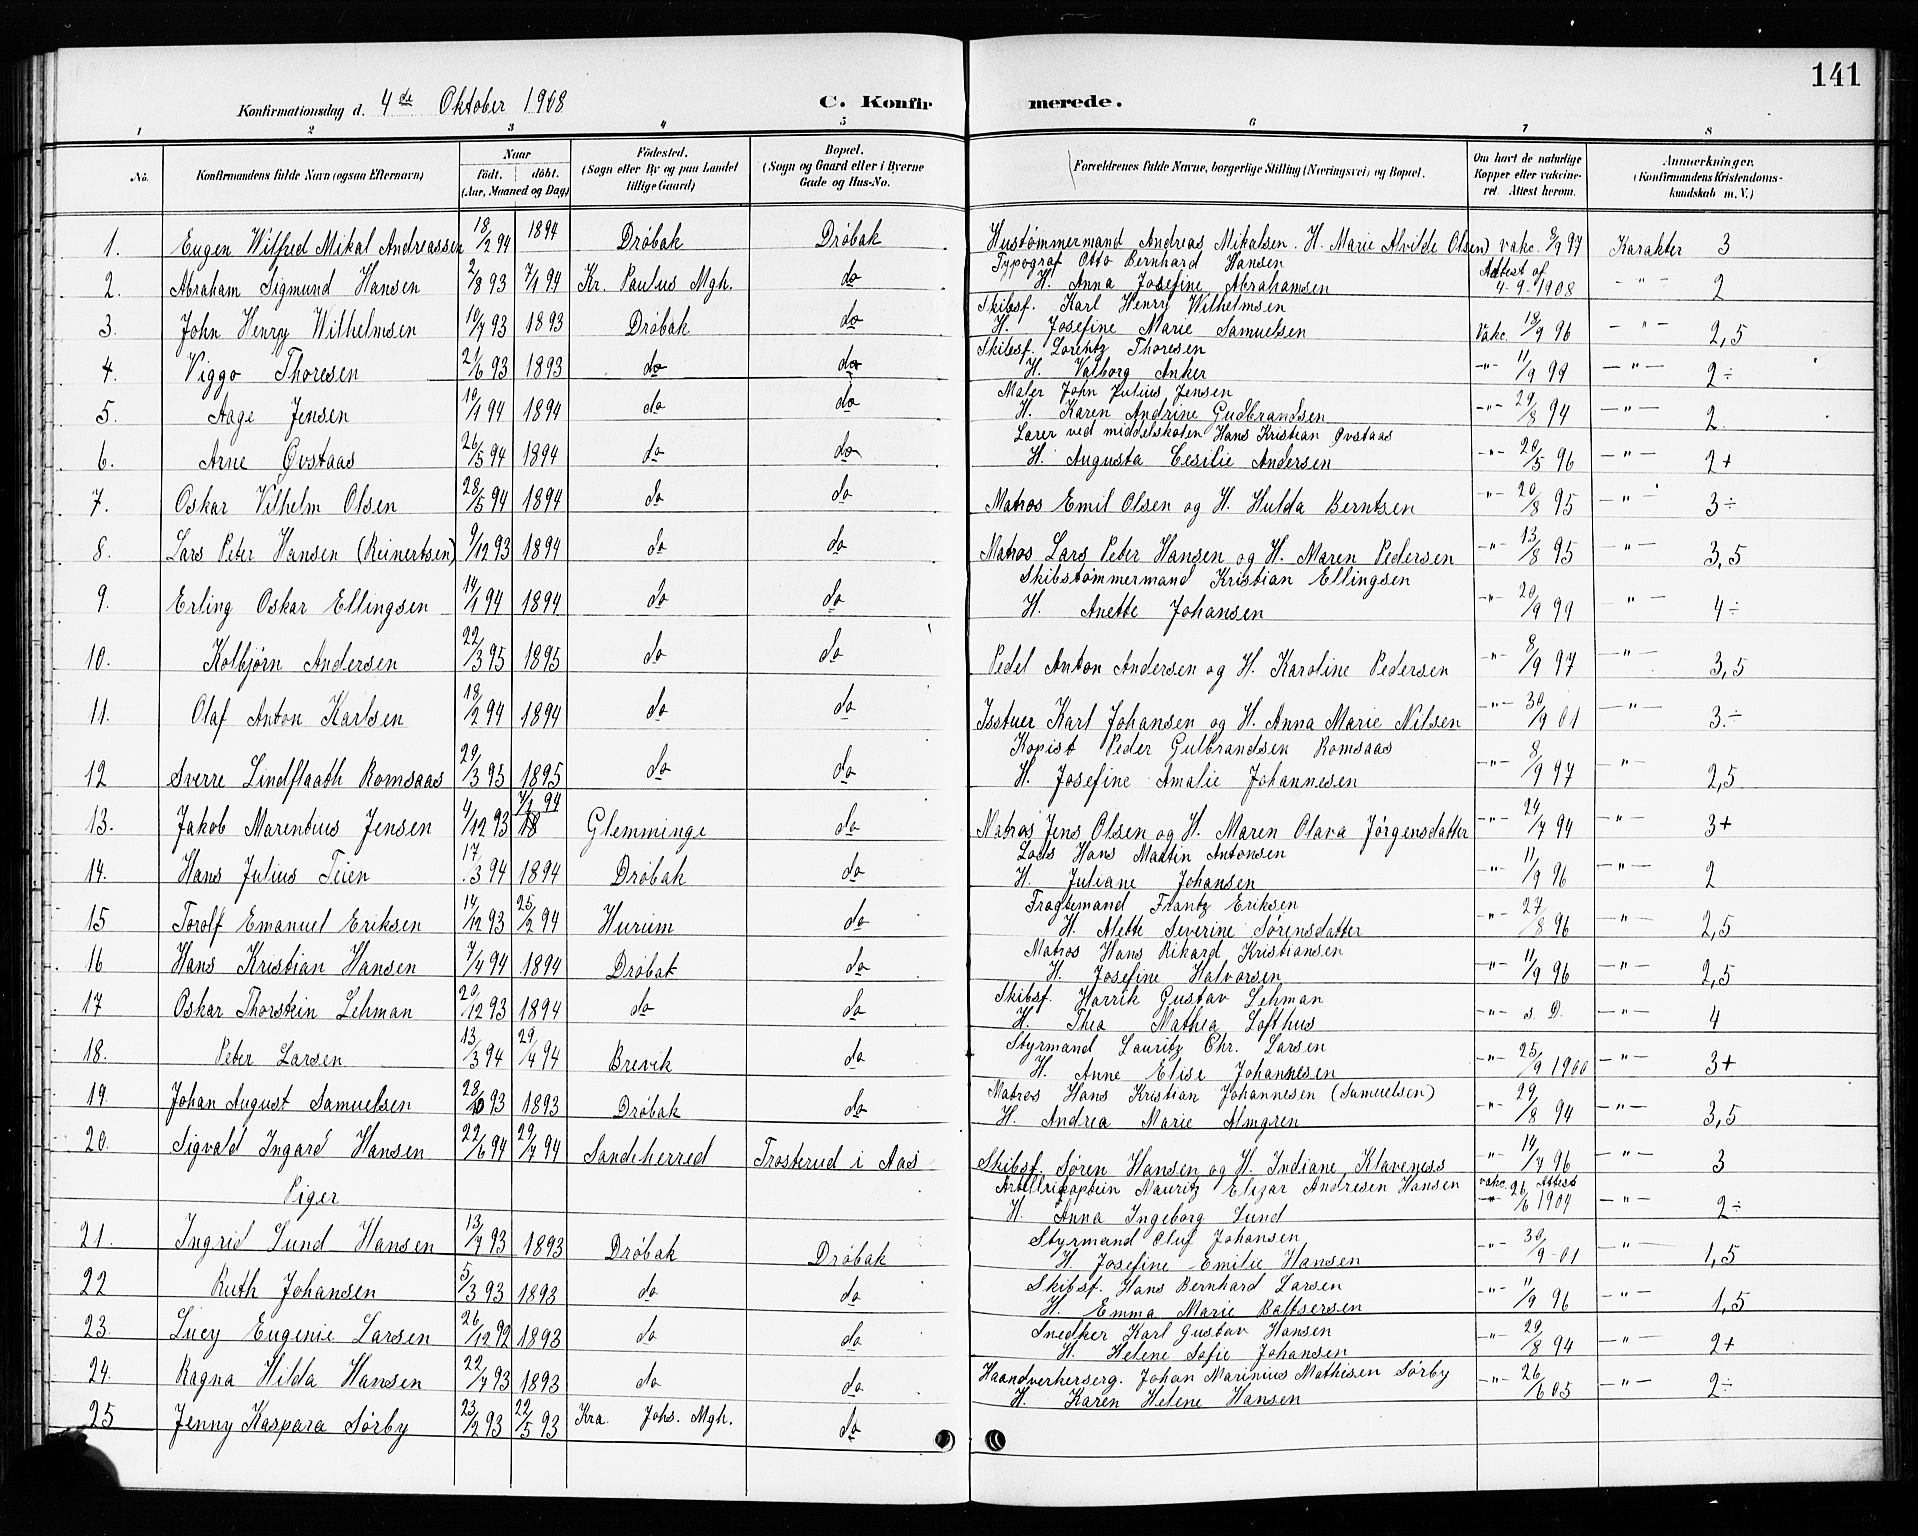 141
Konfirmationsdag d. 4de Oktober 1908 C. Konfirmerede.
1 2 3 4 5 6 7 8
No. Konfirmandens fulde Navn (ogsaa Efternavn) Naar født. døbt. (Aar, Maaned og Dag) Fødested. (Sogn eller By og paa Landet tillige Gaard) Bopæl. (Sogn og Gaard eller i Byerne Gade og Hus-No. Forældrenes fulde Navne, borgerlige Stilling (Næringsvei) og Bopæl. Om havt de naturlige Kopper eller vakcineret. Attest herom. Anmerkninger. (Konfirmandens Kristendomskundskab m. V.)
1. Eugen Wilfred Mikal Andreassen 18/2 94 1894 Drøbak Drøbak Hustømmermand Andreas Mikalsen. H. Marie Alvilde Olsen) vakc. 8/9 97 Karakter 3
2. Abraham Sigmund Hansen 2/8 93 7/1 94 Kr. Paulus Mgh. do Typograf Otto Bernhard Hansen H. Anna Josefine Abrahamsen Attest af 4-9-1908 -"- 2
3. John Henry Wilhelmsen 10/7 93 1893 Drøbak do Skibsf. Karl Henry Wilhelmsen H. Josefine Marie Samuelsen Vakc. 18/9 96 -"- 2,5
4. Viggo Thoresen 21/6 93 1893 do do Skibsf. Lorentz Thoresen H. Valborg Anker -"- 11/9 99 -"- 2÷
5. Aage Jensen 10/1 94 1894 do do Maler John Julius Jensen H. Karen Andrine Gudbrandsen -"- 29/8 94 -"- 2
6. Arne Øvstaas 26/5 94 1894 do do Lærer ved middelskolen Hans Kristian Øvstaas H. Augusta Cesilie Andersen -"- 20/5 96 -"- 2+
7. Oskar Vilhelm Olsen 28/5 94 1894 do do Matros Emil Olsen og H. Hulda Berntsen -"- 20/8 95 -"- 3÷
8. Lars Peter Hansen (Reinertsen) 9/12 93 1894 do do Matros Lars Peter Hansen og H. Maren Pedersen -"- 13/8 95 -"- 3,5
9. Erling Oskar Ellingsen 14/1 94 1894 do do Skibstømmermand Kristian Ellingsen H. Anette Johansen -"- 20/9 99 -"- 4÷
10. Kolbjørn Andersen 22/3 95 1895 do do Pedel Anton Andersen og H. Karoline Pedersen -"- 8/9 97 -"- 3,5
11. Olaf Anton Karlsen 18/2 94 1894 do do Isstuer Karl Johansen og H. Anna Marie Nilsen -"- 30/9 01 -"- 3.÷
12 Sverre Lindflaath Romsaas 29/3 95 1895 do do Kopist Peder Gulbrandsen Romsaas H. Josefine Amalie Johannesen -"- 8/9 97 -"- 2,5
13. Jakob Marentius Jensen 4/12 93 7/1 94 18 Glemminge do Matros Jens Olsen og H. Maren Olava Jørgensdatter -"- 24/7 94 -"- 3+
14. Hans Julius Teien 17/3 94 1894 Drøbak do Lods Hans Martin Antonsen H. Juliane Johansen -"- 11/9 96 -"- 2
15 Torolf Emanuel Eriksen 14/12 93 25/2 94 Hurum do Fragtemand Frantz Eriksen H. Alette Severine Sørensdatter -"- 27/8 96 -"- 2,5
16 Hans Kristian Hansen 7/4 94 1894 Drøbak do Matros Hans Rikard Kristiansen H. Josefine Halvorsen -"- 11/9 96 -"- 2,5
17 Oskar Thorstein Lehman 20/12 93 1894 do do Skibsf. Harrik Gustav Lehman H. Thea Mathea Lofthus -"- s. D. -"- 4
18. Peter Larsen 13/3 94 29/4 94 Brevik do Styrmand Lauritz Chr. Larsen H. Anne Elise Johannesen -"- 25/9 1900 -"- 3+
19. Johan August Samuelsen 28/10 93 1893 Drøbak do Matros Hans Kristian Johannesen (Samuelsen) H. Andrea Marie Almgren -"- 29/8 94 -"- 3,5
20. Sigvald Ingard Hansen 22/6 94 29/7 94 Sandeherred Trosterud i Aas Skibsf. Søren Hansen og H. Indiane Klaveness -"- 14/7 96 -"- 3
Piger
21. Ingrid Lund Hansen 13/7 93 1893 Drøbak Drøbak Artillrikaptein Mauritz Elizar Andresen Hansen H. Anna Ingeborg Lund vakc. Attest -"- 26/6 1904 -"- 2÷
22 Ruth Johansen 5/3 93 1893 do do Styrmand Oluf Johansen H. Josefine Emilie Hansen -"- 30/9-01 -"- 1,5
23. Lucy Eugenie Larsen 26/12 92 1893 do do Skibsf. Hans Bernhard Larsen H. Emma Marie Baltsersen -"- 11/9 96 -"- 1,5
24. Ragna Hilda Hansen 22/7 93 1893 do do Snedker Karl Gustav Hansen H. Helene Sofie Johansen -"- 29/8 94 -"- 2+
25 Jenny Kaspara Sørby 23/2 93 22/5 93 Kra. Johs. Mgh. do Haandverkerserg. Johan Marinius Mathisen Sørby H. Karen Helene Hansen -"- 26/6 05 -"- 2÷